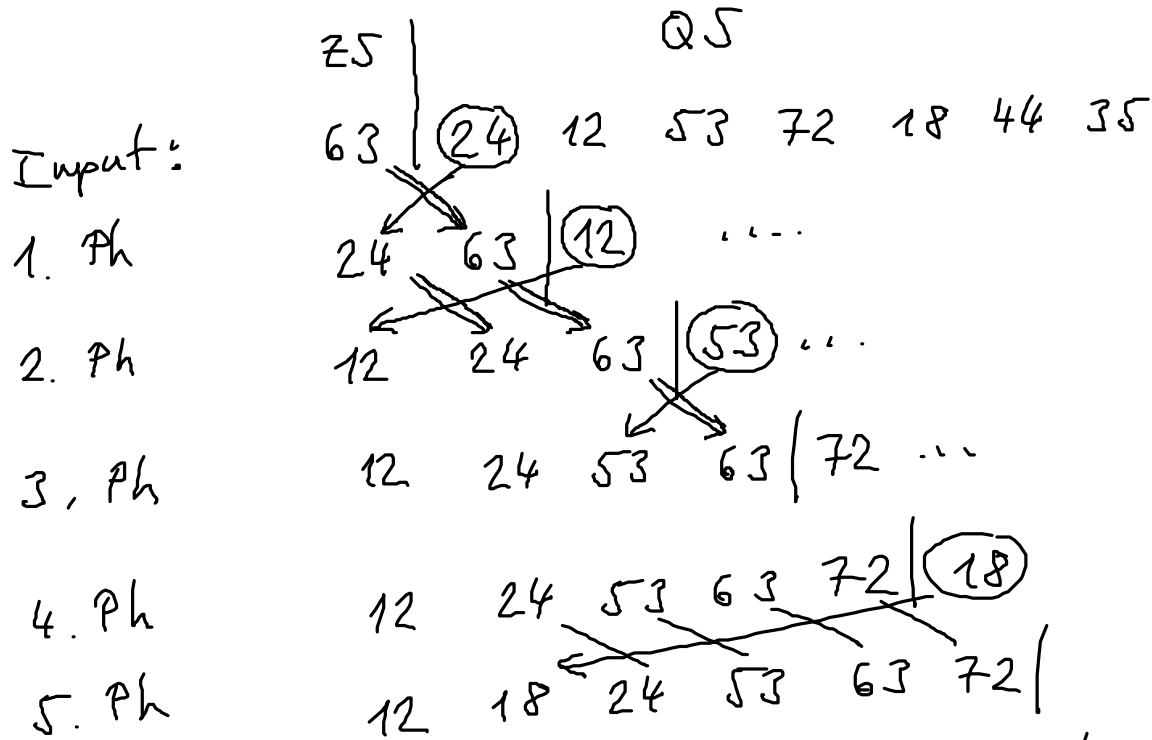 ZS | QS
Input: 63 | 24 12 53 72 18 44 35
1. Ph 24 63 | 12 ....
2. Ph 12 24 63 | 53 ...
3, Ph 12 24 53 63 | 72 ...
4. Ph 12 24 53 63 72 | 18
5. Ph 12 18 24 53 63 72 |